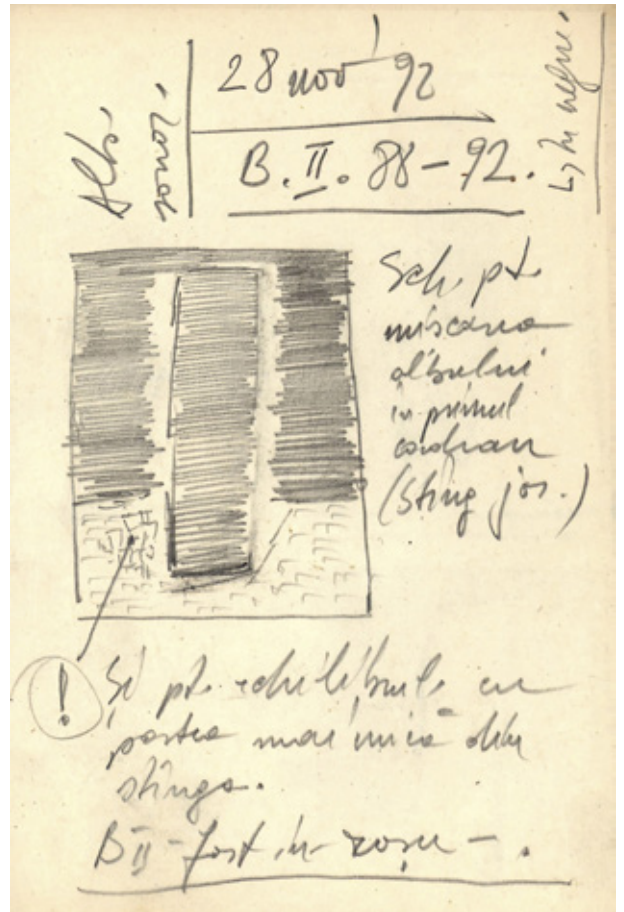 28 nov 92
B. II. 88-92.
Alb
Sch. pt.
mișcarea
albului
în primul
cadran
(stîng jos.)
!
Și pt. echilibrul cu
partea mai mică din
stînga.
B II - fost în roșu - .